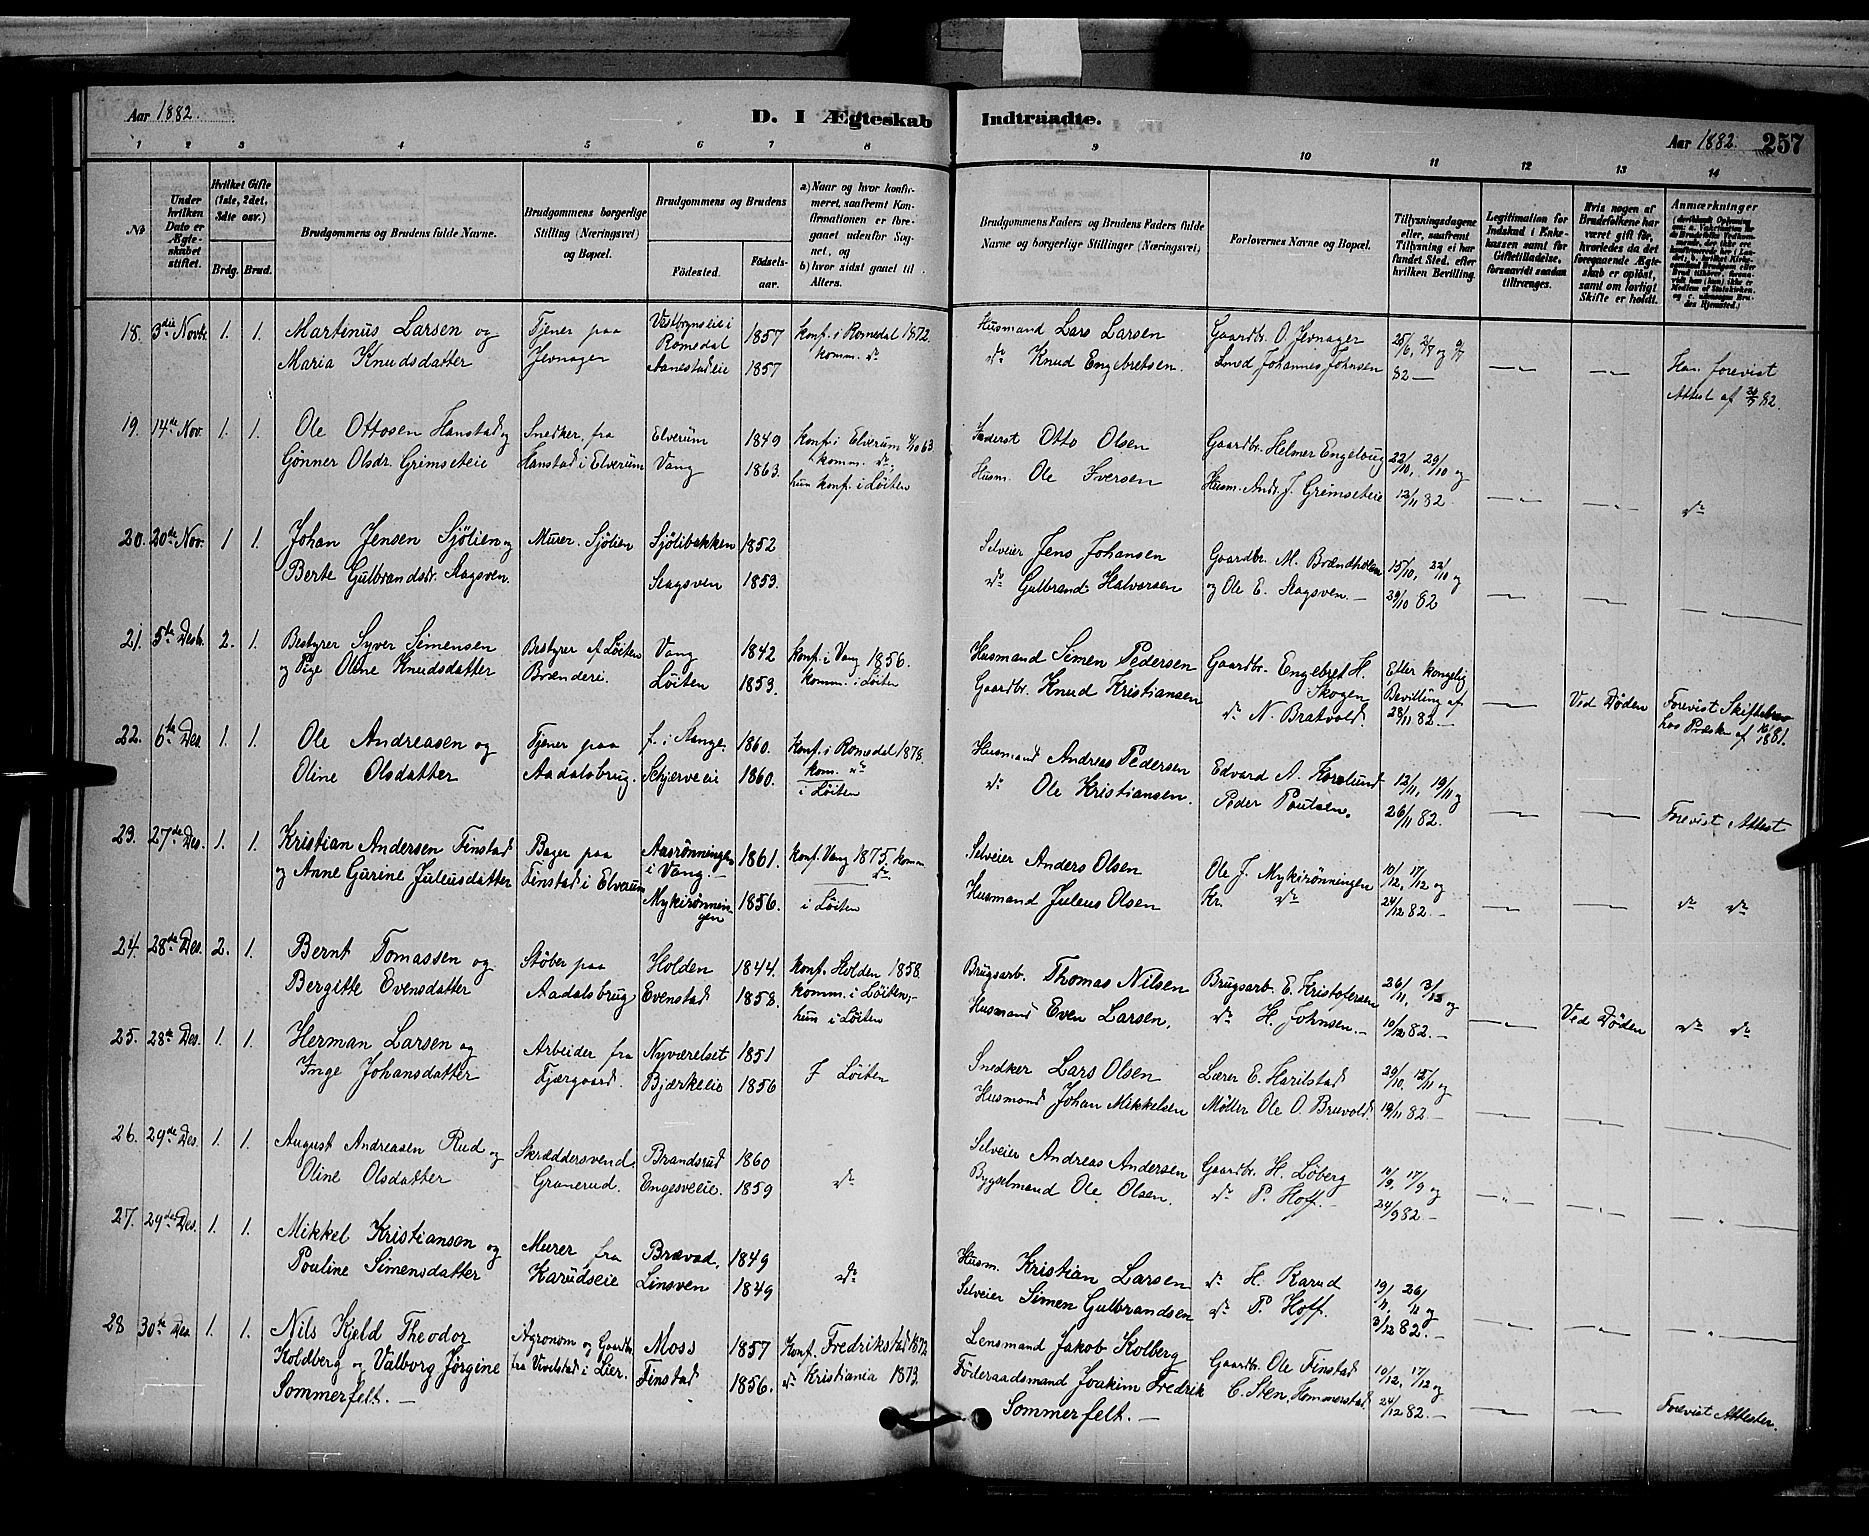 Aar 1882.
D. I Ægteskab Indtraadte.
Aar 1882. 257
1 2 3 4 5 6 7 8 9 10 11 12 13 14
No
Under hvilken Dato er Ægteskabet stiftet.
Hvilket Gifte (1ste, 2det, 3die osv.)
Brdg. Brud.
Brudgommens og Brudens fulde Navne.
Brudgommens borgerlige Stilling (Næringsvei) og Bopæl.
Brudgommens og Brudens
Fødested. Fødsels-aar.
a) Naar og hvor konfirmeret, saafremt Konfirmationen er foregaaet udenfor Sognet, og
b) hvor sidst gaaet til Alters.
Brudgommens Faders og Brudens Faders fulde Navne og borgerlige Stillinger (Næringsvei)
Forlovernes Navne og Bopæl.
Tillysningsdagene eller, saafremt Tillysning ei har fundet Sted, efter hvilken Bevilling.
Legitimation for Indskud i Enkekassen samt for Giftetilladelse, forsaavidt saadan tiltrænges.
Hvis nogen af Brudefolkene har været gift før, hvorledes da det foregaaende Ægteskab er opløst, samt om lovligt Skifte er holdt.
Anmærkninger
18. 3die Novbr. 1. 1. Martinus Larsen og Tjener paa Vestbyneseie i Romedal 1857 konf. i Romedal 1872. Husmand Lars Larsen Gaardbr. O. Jevnager 25/6, 2/7 og 9/7
Maria Knudsdatter Jevnager Aanestadeie 1857 komm. do do Knud Engebretsen. Smed Johannes Johnsen 82 — Han forevist Attest af 82.
19. 14de Nov. 1. 1. Ole Ottosen Hanstad og Snedker, fra Elverum 1849 konf. i Elverum 63 Inderst Otto Olsen Gaardbr. Helmer Engelaug 22/10, 29/10 og
Gønner Olsdr. Grimseteie Hanstad i Elverum Vang 1863. komm. do, hun konf. i Løiten Husm. Ole Iversen Husm. Andr. J. Grimseteie 12/11 82. do
20. 20de Nov. 1 1. Johan Jensen Sjølien og Murer. Sjølien Sjølibakken 1852 Selveier Jens Johansen Gaardbr. M. Brændholen 15/10, 22/10 og
Berte Gulbrandsdr. Stagsven. Stagsven 1853. do Gulbrand Halvorsen og Ole E. Stagsven. — 29/10 82
21. 5te Desbr. 2. 1. Bestyrer Syver Simensen Bestyrer af Løiten Vang 1842 konf. i Vang 1856. Husmand Simen Pedersen Gaardbr. Engebret H. Skogen Efter kongelig
og Pige Oline Knudsdatter Brænderi. Løiten 1853. komm. i Løiten Gaardbr. Knud Kristiansen do N. Bratvold. Bevilling af 28/11 82. — Ved Døden Forevist Skiftebrev hos Præsten af 1881.
22. 6te Des. 1. 1. Ole Andreasen og Tjener paa f. i Stange 1860. Konf. i Romedal 1878. Husmand Andreas Pedersen Edvard A. Korslund 12/11, 19/11 og
Oline Olsdatter Aadalsbrug. Skjærveeie 1860. kom. do i Løiten do Ole Kristiansen. Peder Poulsen. 26/11 82. Forevist Attest
23. 27de Des. 1. 1. Kristian Andersen Finstad Bager paa Aasrønningen i Vang. 1861. konf. Vang 1875. komm. do Selveier Anders Olsen Ole J. Mykirønningen 10/12, 17/12 og
og Anne Gurine Juleusdatter Finstad i Elverum Mykirønningen 1856. i Løiten Husmand Juleus Olsen Kr. do 24/12 82. — do do
24. 28de Des. 2. 1. Bernt Tomassen og Støber paa Holden 1844. konf. Holden 1858. Brugsarb. Thomas Nilsen Brugsarb. E. Kristofersen 26/11, 3/12 og
Bergitte Evensdatter Aadalsbrug Evenstad 1858. komm. i Løiten, hun i Løiten Husmand Even Larsen. do H. Johnsen. — 10/12 82. — Ved Døden do do
25. 28de Des. 1. 1. Herman Larsen og Arbeider fra Nyværelset 1851 Snedker Lars Olsen Lærer E. Harilstad 29/10, 15/11 og
Inge Johansdatter Fjærgaard. Bjærkeeie 1856 I Løiten Husmand Johan Mikkelsen Møller Ole O. Bruvold. 19/11 82. —
26. 29de Des. 1. 1. August Andreasen Rud og Skræddersvend. Brandsrud 1860 Selveier Andreas Andersen Gaardbr. H. Løberg 10/9, 17/9 og
Oline Olsdatter Granerud. Engesveeie. 1859 do Bygselmand Ole Olsen. do P. Hoff. — 24/9 82. —
27. 29de Des. 1. 1. Mikkel Kristiansen og Murer fra Brævad, 1849 Husm. Kristian Larsen do H. Karud 19/11, 26/11 og
Pouline Simensdatter Karudseie Linsven 1849 do Selveier Simen Gulbrandsen do P. Hoff. 3/12 82. —
28 30te Des. 1. 1. Nils Kjeld Theodor Agronom og Gaardbr. Moss 1857 Konf. Fredrikstad 1872 Lensmand Jakob Kolberg Gaardbr. Ole Finstad 10/12, 17/12 og
Koldberg og Valborg Jørgine fra Vivelstad i Lier. Finstad 1856. do Kristiania 1873. Føderaadsmand Joakim Fredrik C. Sten, Hommerstad. 24/12 82. — Forevist Attester.
Sommerfelt. — Sommerfelt. —